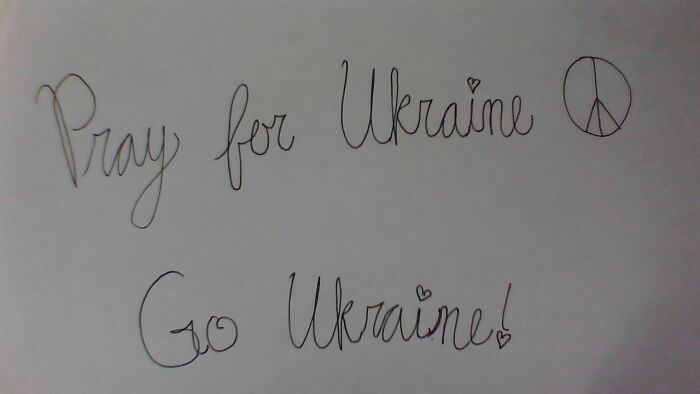 Pray for Ukraine
Go Ukraine!